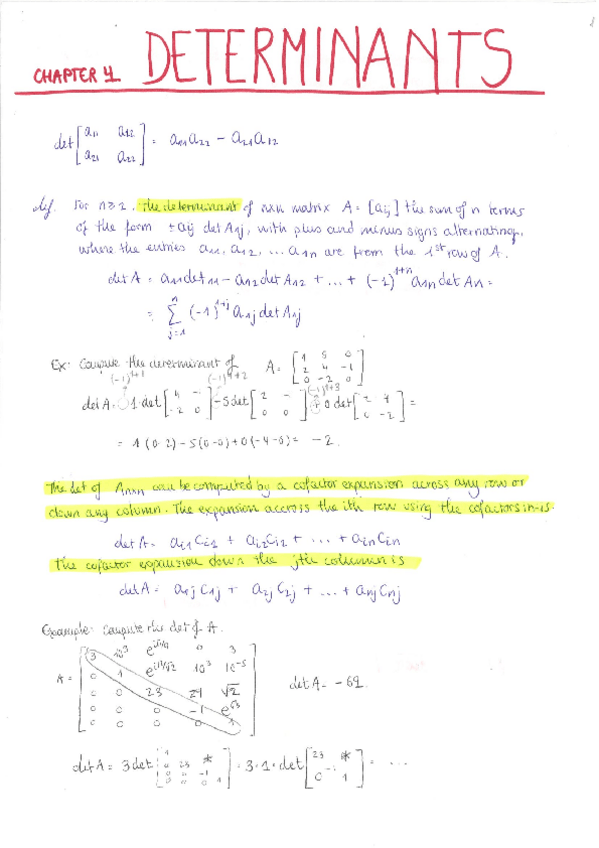 1
CHAPTER 4 DETERMINANTS
det [a11 a12; a21 a22] = a11a22 - a21a12
def. For n≥2, the determinant of nxn matrix A = [aij] the sum of n terms
of the form ±aij det A1j, with plus and minus signs alternating,
where the entries a11, a12, ... a1n are from the 1st row of A.
det A = a11det11 - a12det A12 + ... + (-1)^1+n a1n det A1n =
= Σ j=1 n (-1)^1+j a1j det A1j
Ex: Compute the determinant of A = [1 5 0; 2 4 -1; 0 -2 0]
(-1)^1+1 (-1)^1+2 (-1)^1+3
det A = 1·det [4 -; -2 0] - 5det [2 -; 0 0] + 0 det [2 4; 0 -2] =
= 1(0-2) - 5(0-0) + 0(-4-0) = -2.
The det of Anxn can be computed by a cofactor expansion across any row or
down any column. The expansion accross the ith row using the cofactors in is.
det A = ai1Ci1 + ai2Ci2 + ... + ainCin
The cofactor expansion down the jth column is
det A = a1jC1j + a2jC2j + ... + anjCnj
Example: Compute the det of A.
3 10^3 0 3
A = 0 1 10^3 10^-5
0 0 23 √2 det A = -69.
0 0 0 -1 e^√3
0 0 0 0 1
det A = 3det [1; 0 23 *; 0 0 -1; 0 0 0 1] = 3·1·det [23 *; -1; 0 1] = ...